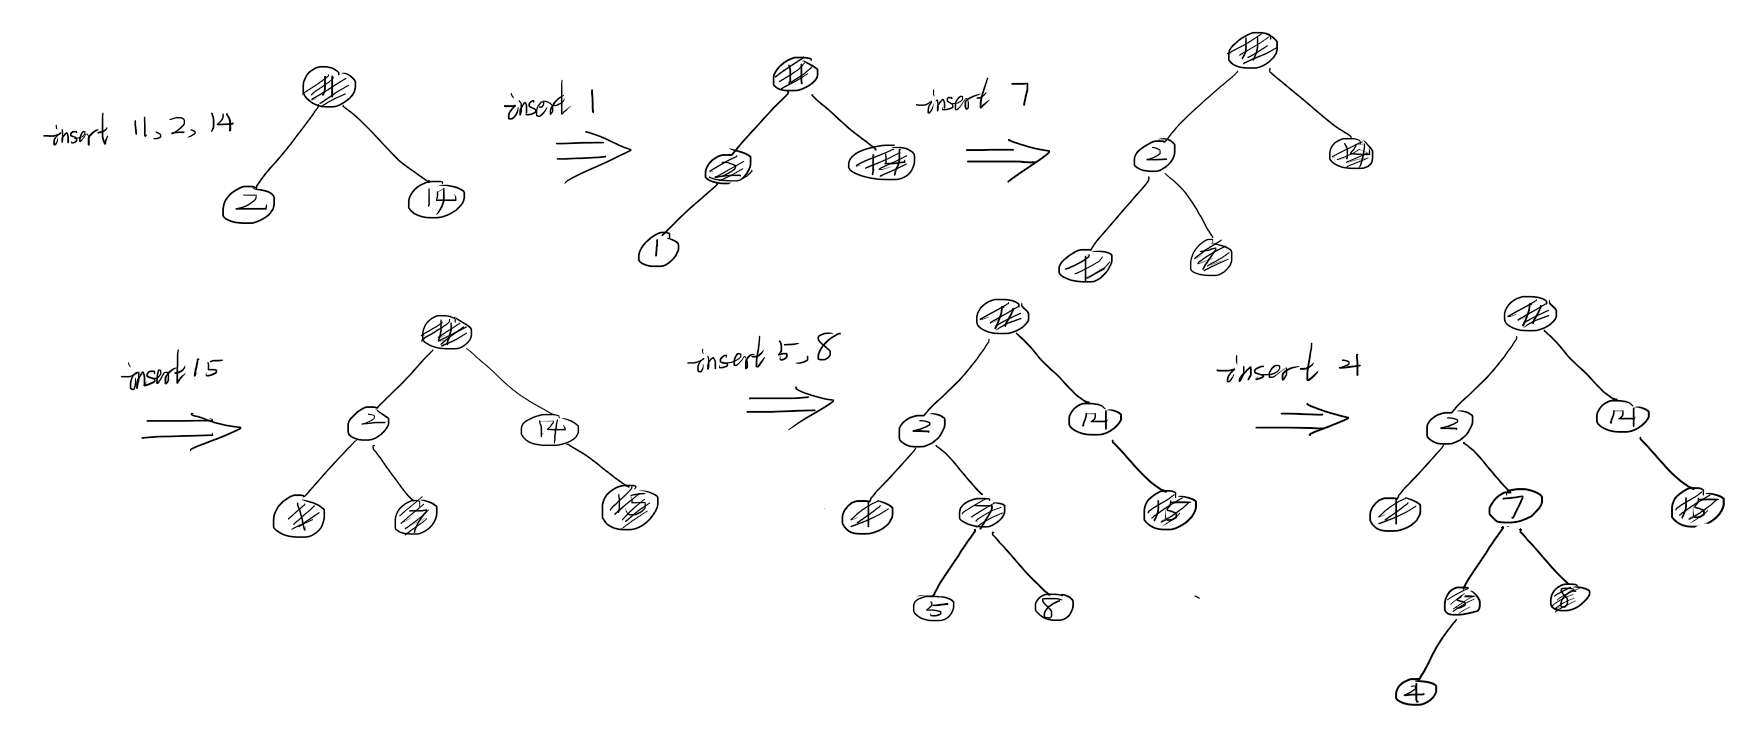 insert 11, 2, 14
11
2
14
insert 1
11
2
14
1
insert 7
11
2
14
1
7
insert 15
11
2
14
1
7
15
insert 5, 8
11
2
14
1
7
15
5
8
insert 4
11
2
14
1
7
15
5
8
4